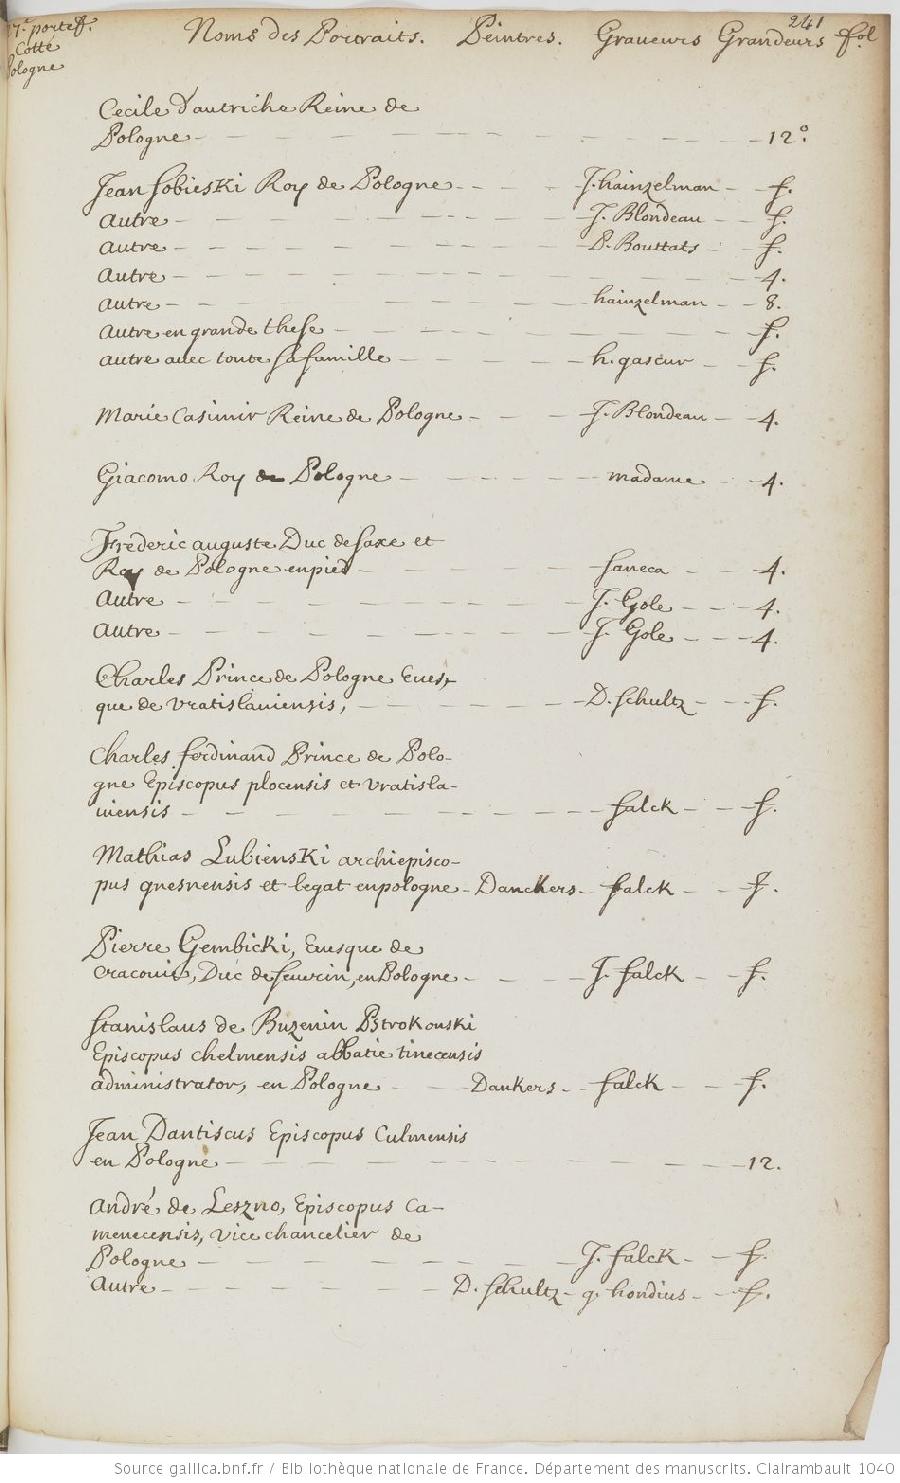 241
17.e portef.
Cotté
Pologne
Noms des Portraits. Peintres. Graveurs Grandeurs fol
Cecile d'autriche Reine de
Pologne - 12°.
Jean Sobieski Roy de Pologne - J. hainzelman - f.
autre - J. Blondeau - f.
autre - P. Bouttats - f.
autre - 4.
autre - hainzelman - 8.
autre en grande these - f.
autre avec toute sa famille - h. gascar - f.
Marie Casimir Reine de Pologne - J. Blondeau - 4.
Giacomo Roy de Pologne - madame - 4.
Frederic auguste Duc de saxe et
Roy de Pologne en pied - saneca - 4.
autre - J. Gole - 4.
autre - J. Gole - 4.
Charles Prince de Pologne Eves-
que de vratislaviensis, - D. Schultz - f.
Charles ferdinand Prince de Polo-
gne Episcopus plocensis et vratisla-
viensis - falck - f.
Mathias Lubienski archiepisco-
pus gnesnensis et legat en pologne - Danckers - falck - f.
Pierre Gembicki, Evesque de
Cracovie, Duc de seuvrin, en Pologne - J. falck - f.
Stanislaus de Buzenin Pstrokouski
Episcopus chelmensis abbatie tinecensis
administrator, en Pologne - Dankers - falck - f.
Jean Dantiscus Episcopus Culmensis
en Pologne - 12.
André de Leszno, Episcopus Ca-
menecensis, vice chancelier de
Pologne - J. falck - f.
Autre - D. Schultz - g. hondius - f.
Source gallica.bnf.fr / Bibliothèque nationale de France. Département des manuscrits. Clairambault 1040